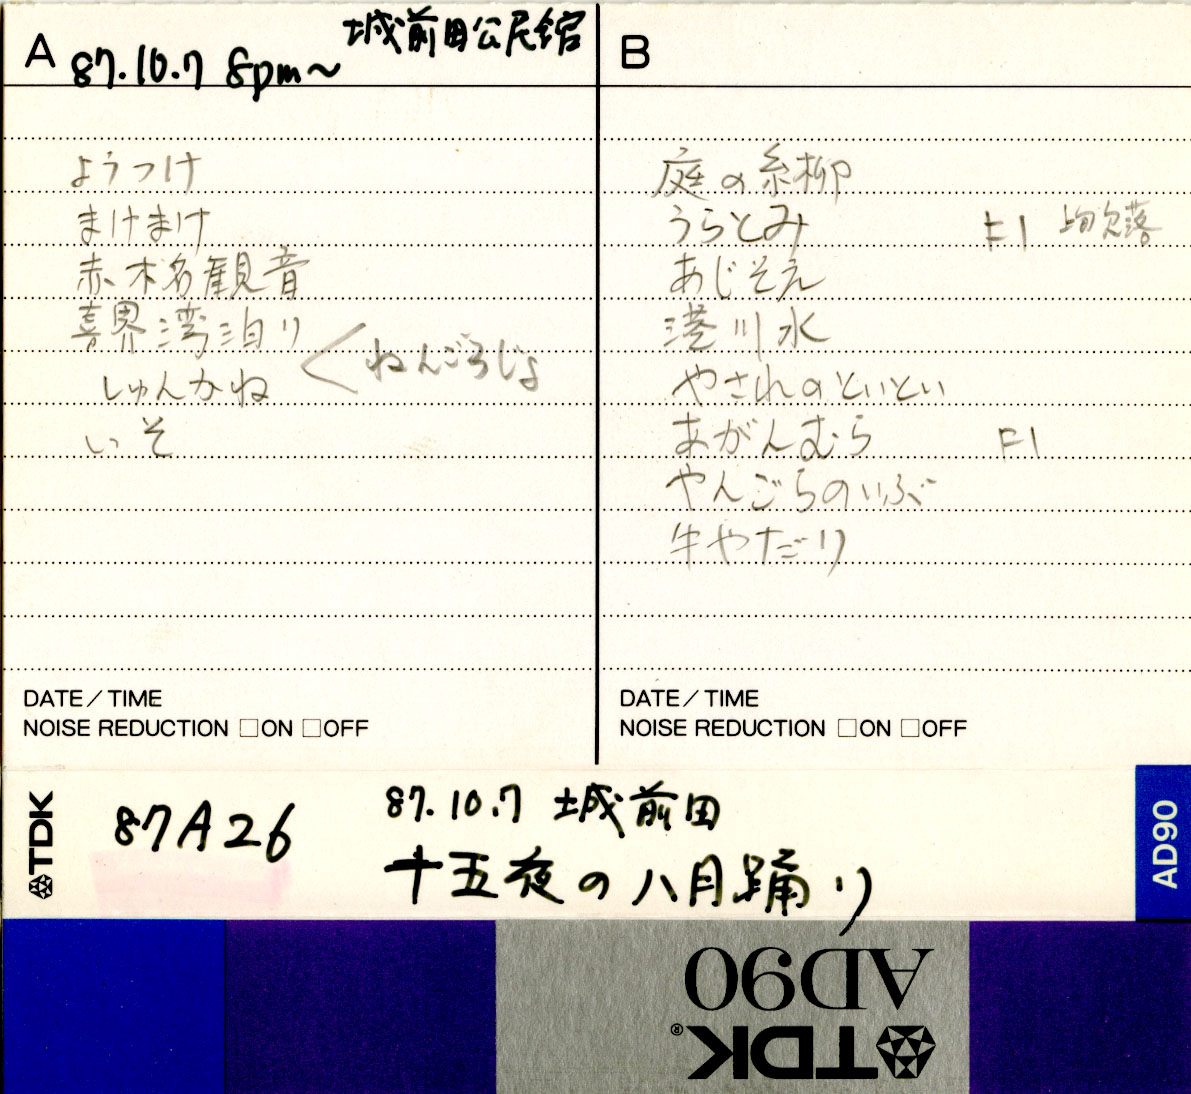 A 87.10.7 8pm～ 城前田公民館
ようつけ
まけまけ
赤木名観音
喜界湾泊り
しゅんかね < ねんごろじょ
いそ
DATE／TIME
NOISE REDUCTION □ON □OFF
B
庭の糸柳
うらとみ F1 上旬欠落
あじそえ
港川水
やされのといとい
あがんむら F1
やんごらのいぶ
牛やだり
DATE／TIME
NOISE REDUCTION □ON □OFF
TDK
87A26
87.10.7 城前田
十五夜の八月踊り
AD90
AD90
TDK®